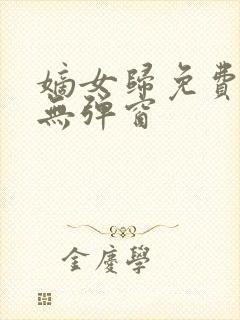 嫡女歸免費
無彈窗
金慶學